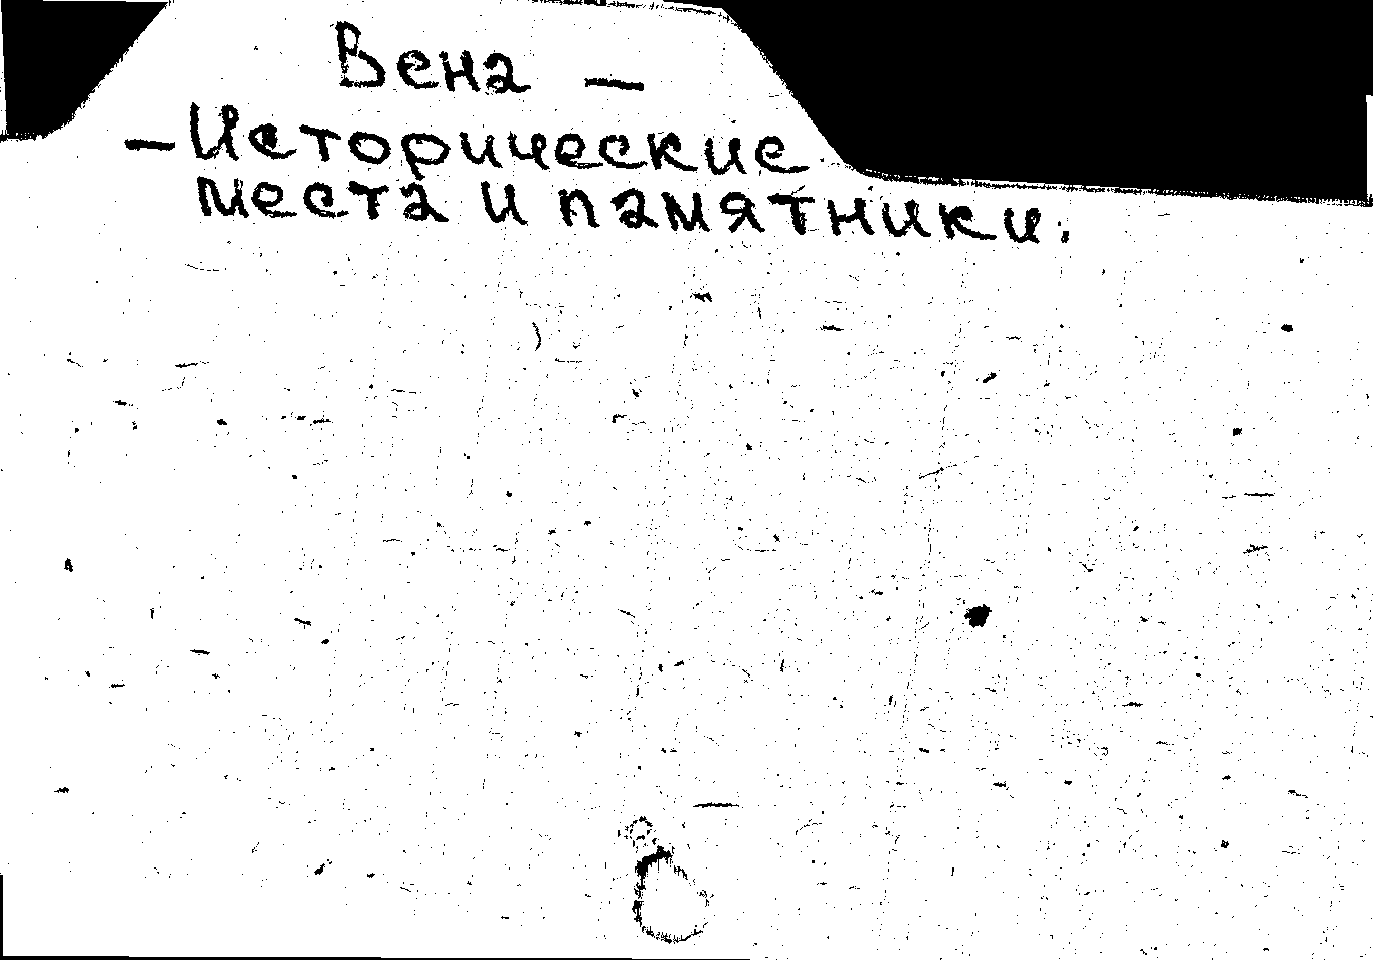 Вена —
— Исторические
места и памятники.